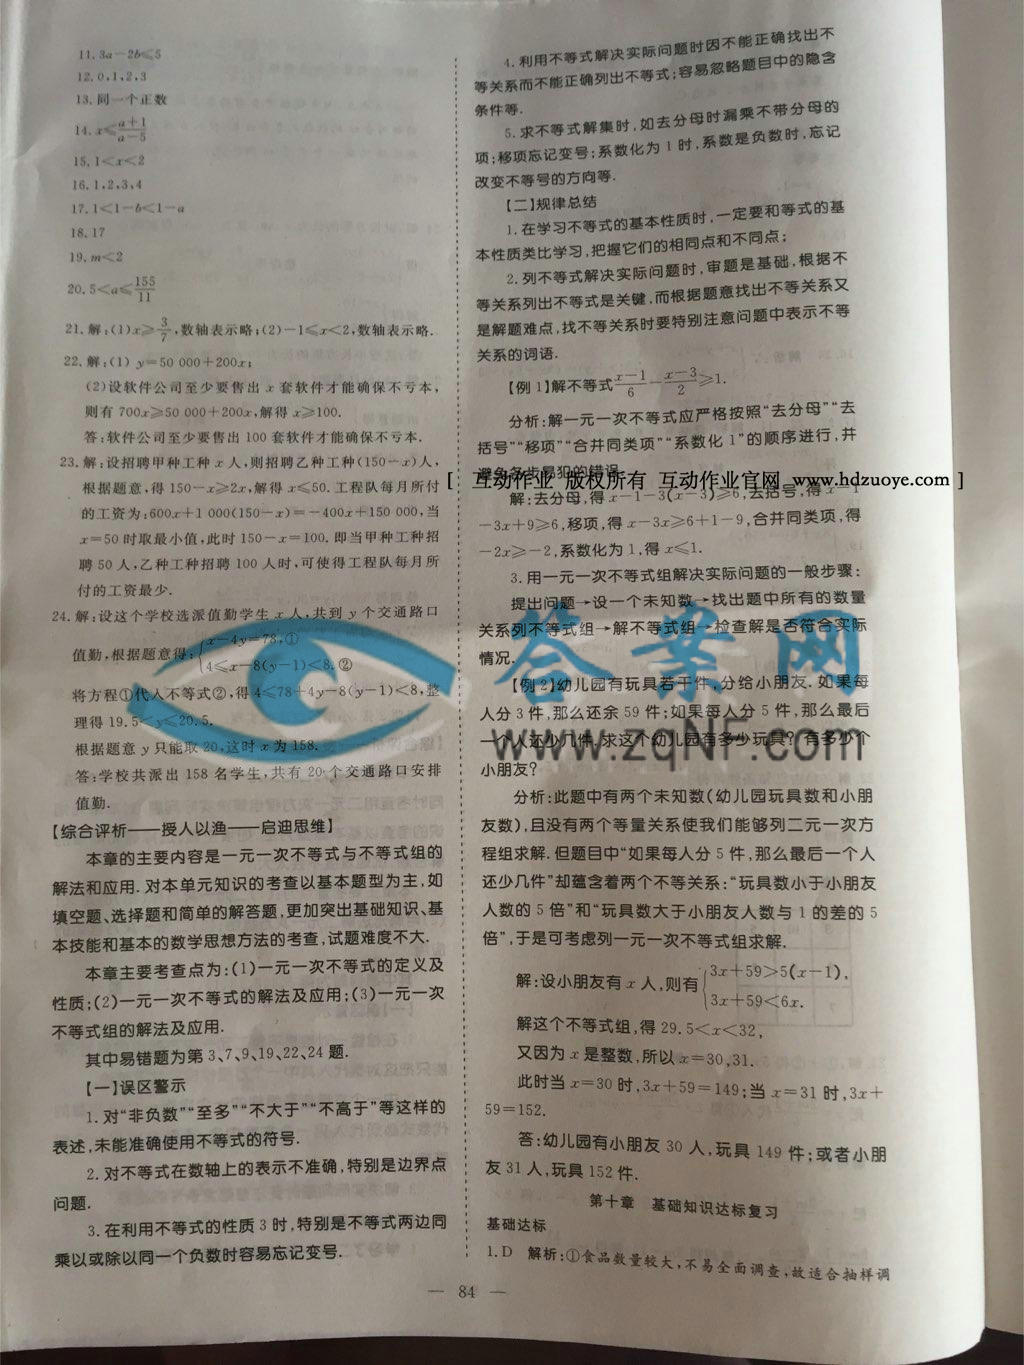 11. 3a－2b≤5
12. 0,1,2,3
13. 同一个正数
14. x≤(a＋1)/(a－5)
15. 1＜x＜2
16. 1,2,3,4
17. 1＜1－b＜1－a
18. 17
19. m＜2
20. 5＜a≤155/11
21. 解:(1)x≥3/7,数轴表示略;(2)－1≤x＜2,数轴表示略.
22. 解:(1) y＝50 000＋200x;
(2)设软件公司至少要售出 x 套软件才能确保不亏本,
则有 700x≥50 000＋200x,解得 x≥100.
答:软件公司至少要售出 100 套软件才能确保不亏本.
23. 解:设招聘甲种工种 x 人,则招聘乙种工种(150－x)人,
根据题意,得 150－x≥2x,解得 x≤50. 工程队每月所付
的工资为:600x＋1 000(150－x)＝－400x＋150 000,当
x＝50 时取最小值,此时 150－x＝100. 即当甲种工种招
聘 50 人,乙种工种招聘 100 人时,可使得工程队每月所
付的工资最少.
24. 解:设这个学校选派值勤学生 x 人,共到 y 个交通路口
值勤,根据题意得:{x－4y＝78,①
4≤x－8(y－1)＜8.②
将方程①代入不等式②,得 4≤78＋4y－8(y－1)＜8,整
理得 19.5＜y≤20.5.
根据题意 y 只能取 20,这时 x 为 158.
答:学校共派出 158 名学生,共有 20 个交通路口安排
值勤.
【综合评析——授人以渔——启迪思维】
本章的主要内容是一元一次不等式与不等式组的
解法和应用. 对本单元知识的考查以基本题型为主,如
填空题、选择题和简单的解答题,更加突出基础知识、基
本技能和基本的数学思想方法的考查,试题难度不大.
本章主要考查点为:(1)一元一次不等式的定义及
性质;(2)一元一次不等式的解法及应用;(3)一元一次
不等式组的解法及应用.
其中易错题为第 3、7、9、19、22、24 题.
【一】误区警示
1. 对“非负数”“至多”“不大于”“不高于”等这样的
表述,未能准确使用不等式的符号.
2. 对不等式在数轴上的表示不准确,特别是边界点
问题.
3. 在利用不等式的性质 3 时,特别是不等式两边同
乘以或除以同一个负数时容易忘记变号.
4. 利用不等式解决实际问题时因不能正确找出不
等关系而不能正确列出不等式;容易忽略题目中的隐含
条件等.
5. 求不等式解集时,如去分母时漏乘不带分母的
项;移项忘记变号;系数化为 1 时,系数是负数时,忘记
改变不等号的方向等.
【二】规律总结
1. 在学习不等式的基本性质时,一定要和等式的基
本性质类比学习,把握它们的相同点和不同点;
2. 列不等式解决实际问题时,审题是基础,根据不
等关系列出不等式是关键,而根据题意找出不等关系又
是解题难点,找不等关系时要特别注意问题中表示不等
关系的词语.
【例 1】解不等式(x－1)/6－(x－3)/2≥1.
分析:解一元一次不等式应严格按照“去分母”“去
括号”“移项”“合并同类项”“系数化 1”的顺序进行,并
避免各步易犯的错误.
[ 互动作业 版权所有 互动作业官网 www.hdzuoye.com ]
解:去分母,得 x－1－3(x－3)≥6,去括号,得 x－1
－3x＋9≥6,移项,得 x－3x≥6＋1－9,合并同类项,得
－2x≥－2,系数化为 1,得 x≤1.
3. 用一元一次不等式组解决实际问题的一般步骤:
提出问题→设一个未知数→找出题中所有的数量
关系列不等式组→解不等式组→检查解是否符合实际
情况.
答案网
www.zqNF.com
【例 2】幼儿园有玩具若干件,分给小朋友. 如果每
人分 3 件,那么还余 59 件;如果每人分 5 件,那么最后
一个人还少几件. 求这个幼儿园有多少玩具? 有多少个
小朋友?
分析:此题中有两个未知数(幼儿园玩具数和小朋
友数),且没有两个等量关系使我们能够列二元一次方
程组求解. 但题目中“如果每人分 5 件,那么最后一个人
还少几件”却蕴含着两个不等关系:“玩具数小于小朋友
人数的 5 倍”和“玩具数大于小朋友人数与 1 的差的 5
倍”,于是可考虑列一元一次不等式组求解.
解:设小朋友有 x 人,则有{3x＋59＞5(x－1),
3x＋59＜6x.
解这个不等式组,得 29.5＜x＜32,
又因为 x 是整数,所以 x＝30,31.
此时当 x＝30 时,3x＋59＝149;当 x＝31 时,3x＋
59＝152.
答:幼儿园有小朋友 30 人,玩具 149 件;或者小朋
友 31 人,玩具 152 件.
第十章 基础知识达标复习
基础达标
1. D 解析:①食品数量较大,不易全面调查,故适合抽样调
— 84 —